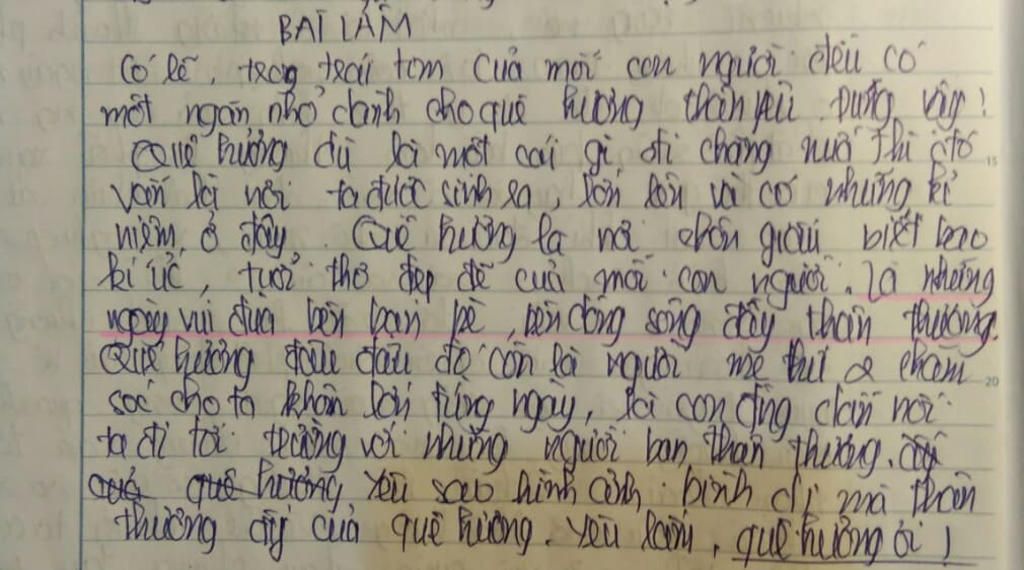 BÀI LÀM
Có lẽ, trong trái tim của mỗi con người đều có
một ngăn nhỏ dành cho quê hương thân yêu. Đúng vậy!
Quê hương dù là một cái gì đi chăng nữa thì đó
vẫn là nơi ta được sinh ra, lớn lên và có những kỉ
niệm ở đây. Quê hương là nơi chôn giấu biết bao
kí ức, tuổi thơ đẹp đẽ của mỗi con người. Là những
ngày vui đùa bên bạn bè, bên dòng sông đầy thân thương.
Quê hương đâu đâu đó còn là người mẹ chăm
sóc cho ta khôn lớn từng ngày, là con đường dẫn nơi
ta đi tới trường với những người bạn thân thương.
quê hương yêu sao hình ảnh bình dị mà thân
thương ấy của quê hương. Yêu lắm, quê hương ơi!
15
20